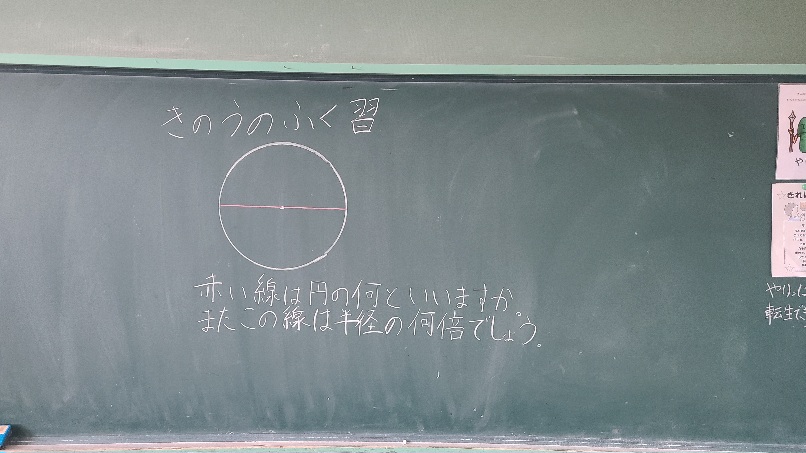 きのうのふく習
赤い線は円の何といいますか。
またこの線は半径の何倍でしょう。
きれい
や
やけに
転生でき